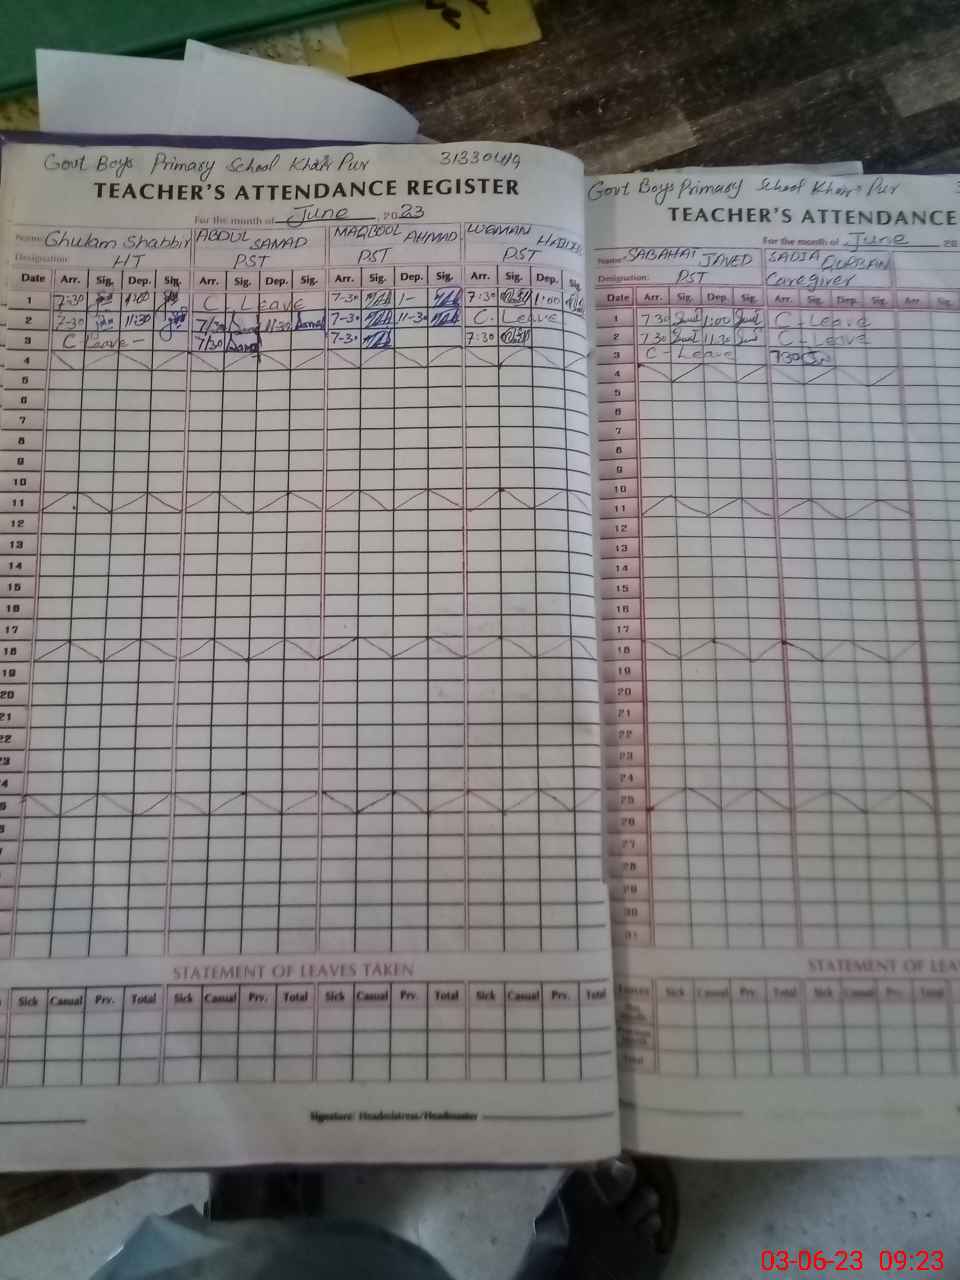 Govt Boys Primary School Khair Pur 31330449
TEACHER'S ATTENDANCE REGISTER
For the month of June, 2023
Name: Ghulam Shabbir ABDUL SAMAD MAQBOOL AHMAD LUQMAN
Designation: HT PST PST PST
Date Arr. Sig. Dep. Sig. Arr. Sig. Dep. Sig. Arr. Sig. Dep. Sig. Arr. Sig. Dep. Sig.
1 7-30 1:00 C-Leave 7-30 1- 7:30 1:00
2 7-30 11:30 7/30 11:30 7-30 11-30 C-Leave
3 C-Leave- 7/30 7-30 7:30
4
5
6
7
8
9
10
11
12
13
14
15
16
17
18
19
20
21
22
23
4
STATEMENT OF LEAVES TAKEN
Sick Casual Prv. Total Sick Casual Prv. Total Sick Casual Prv. Total Sick Casual Prv. Total
Signature: Headmistress/Headmaster
Govt Boys Primary School Khair Pur
TEACHER'S ATTENDANCE
For the month of June 20
Name: SABAHAT JAVED SADIA QURBAN
Designation: PST Caregiver
Date Arr. Sig. Dep. Sig. Arr. Sig. Dep. Sig. Arr Sig.
1 7 30 1:00 C-Leave
2 7 30 11.30 C-Leave
3 C-Leave 7 30
4
5
6
7
8
9
10
11
12
13
14
15
16
17
18
19
20
21
22
23
24
25
26
27
28
29
30
31
STATEMENT OF LEA
Leaves Sick Casual Prv. Total Sick Casual Prv. Total
Total
03-06-23 09:23